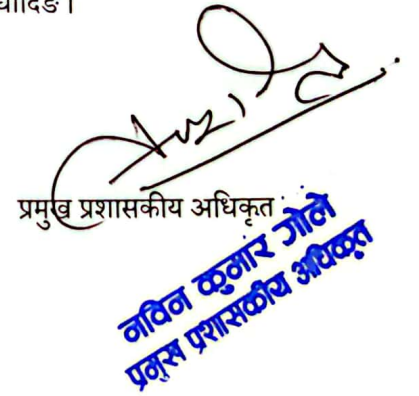 धादिङ।
प्रमुख प्रशासकीय अधिकृत
नविन कुमार गोले
प्रमुख प्रशासकीय अधिकृत